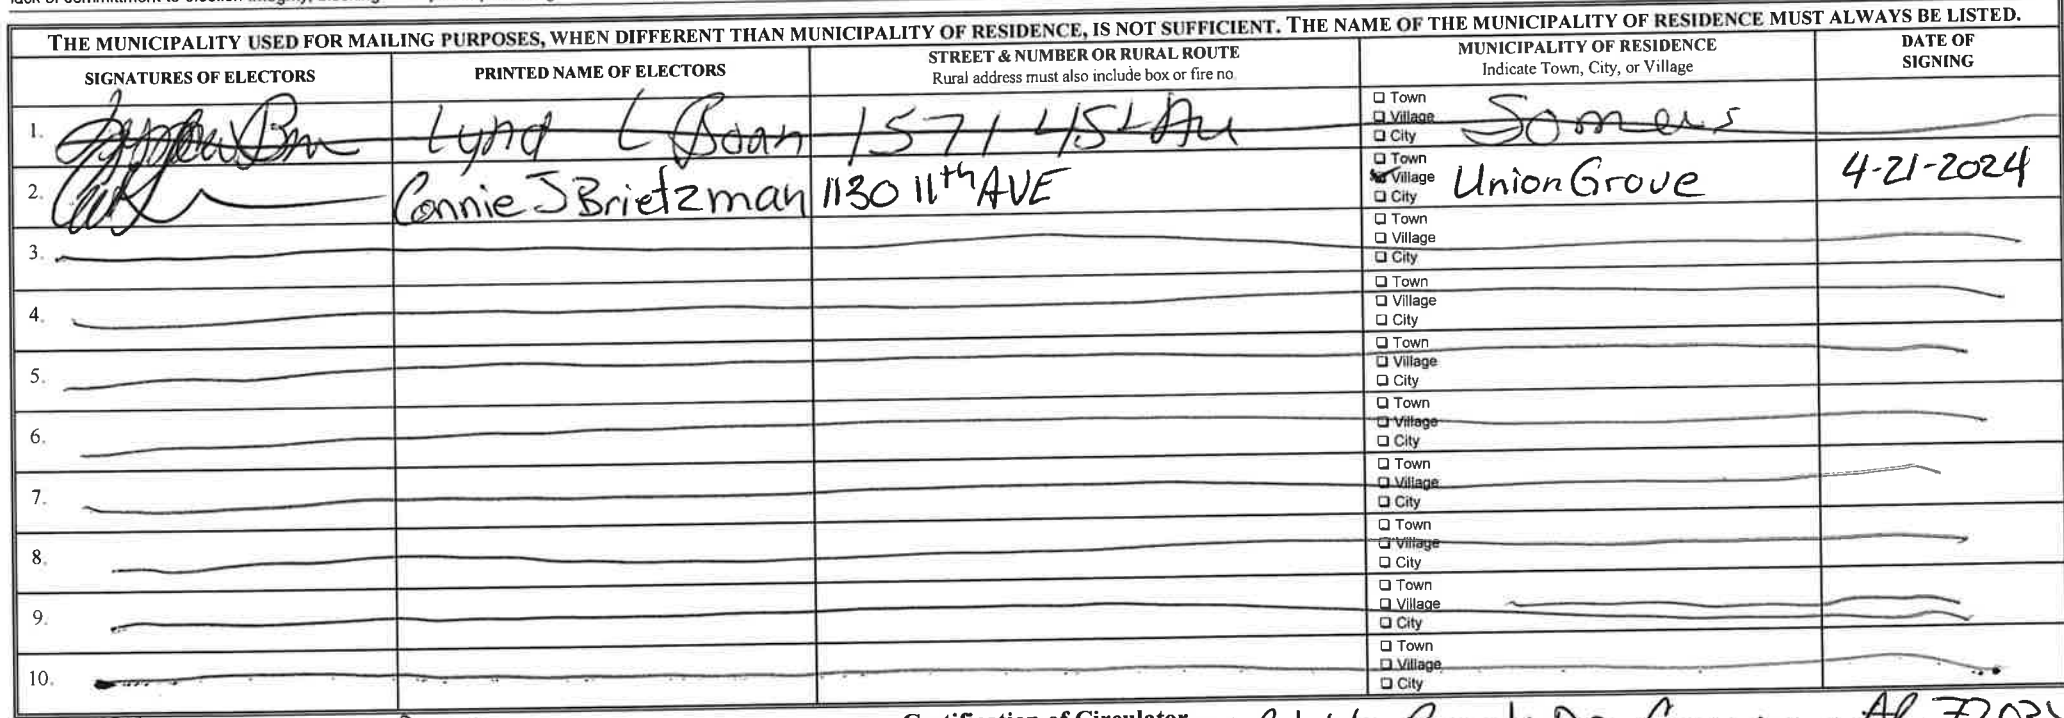 THE MUNICIPALITY USED FOR MAILING PURPOSES, WHEN DIFFERENT THAN MUNICIPALITY OF RESIDENCE, IS NOT SUFFICIENT. THE NAME OF THE MUNICIPALITY OF RESIDENCE MUST ALWAYS BE LISTED.
SIGNATURES OF ELECTORS
PRINTED NAME OF ELECTORS
STREET & NUMBER OR RURAL ROUTE
Rural address must also include box or fire no.
MUNICIPALITY OF RESIDENCE
Indicate Town, City, or Village
DATE OF
SIGNING
1.
L
1571 45
Town
Village
City
Somers
2.
Connie J Brietzman
1130 11th AVE
Town
Village
City
Union Grove
4-21-2024
3.
Town
Village
City
4.
Town
Village
City
5.
Town
Village
City
6.
Town
Village
City
7.
Town
Village
City
8.
Town
Village
City
9.
Town
Village
City
10.
Town
Village
City